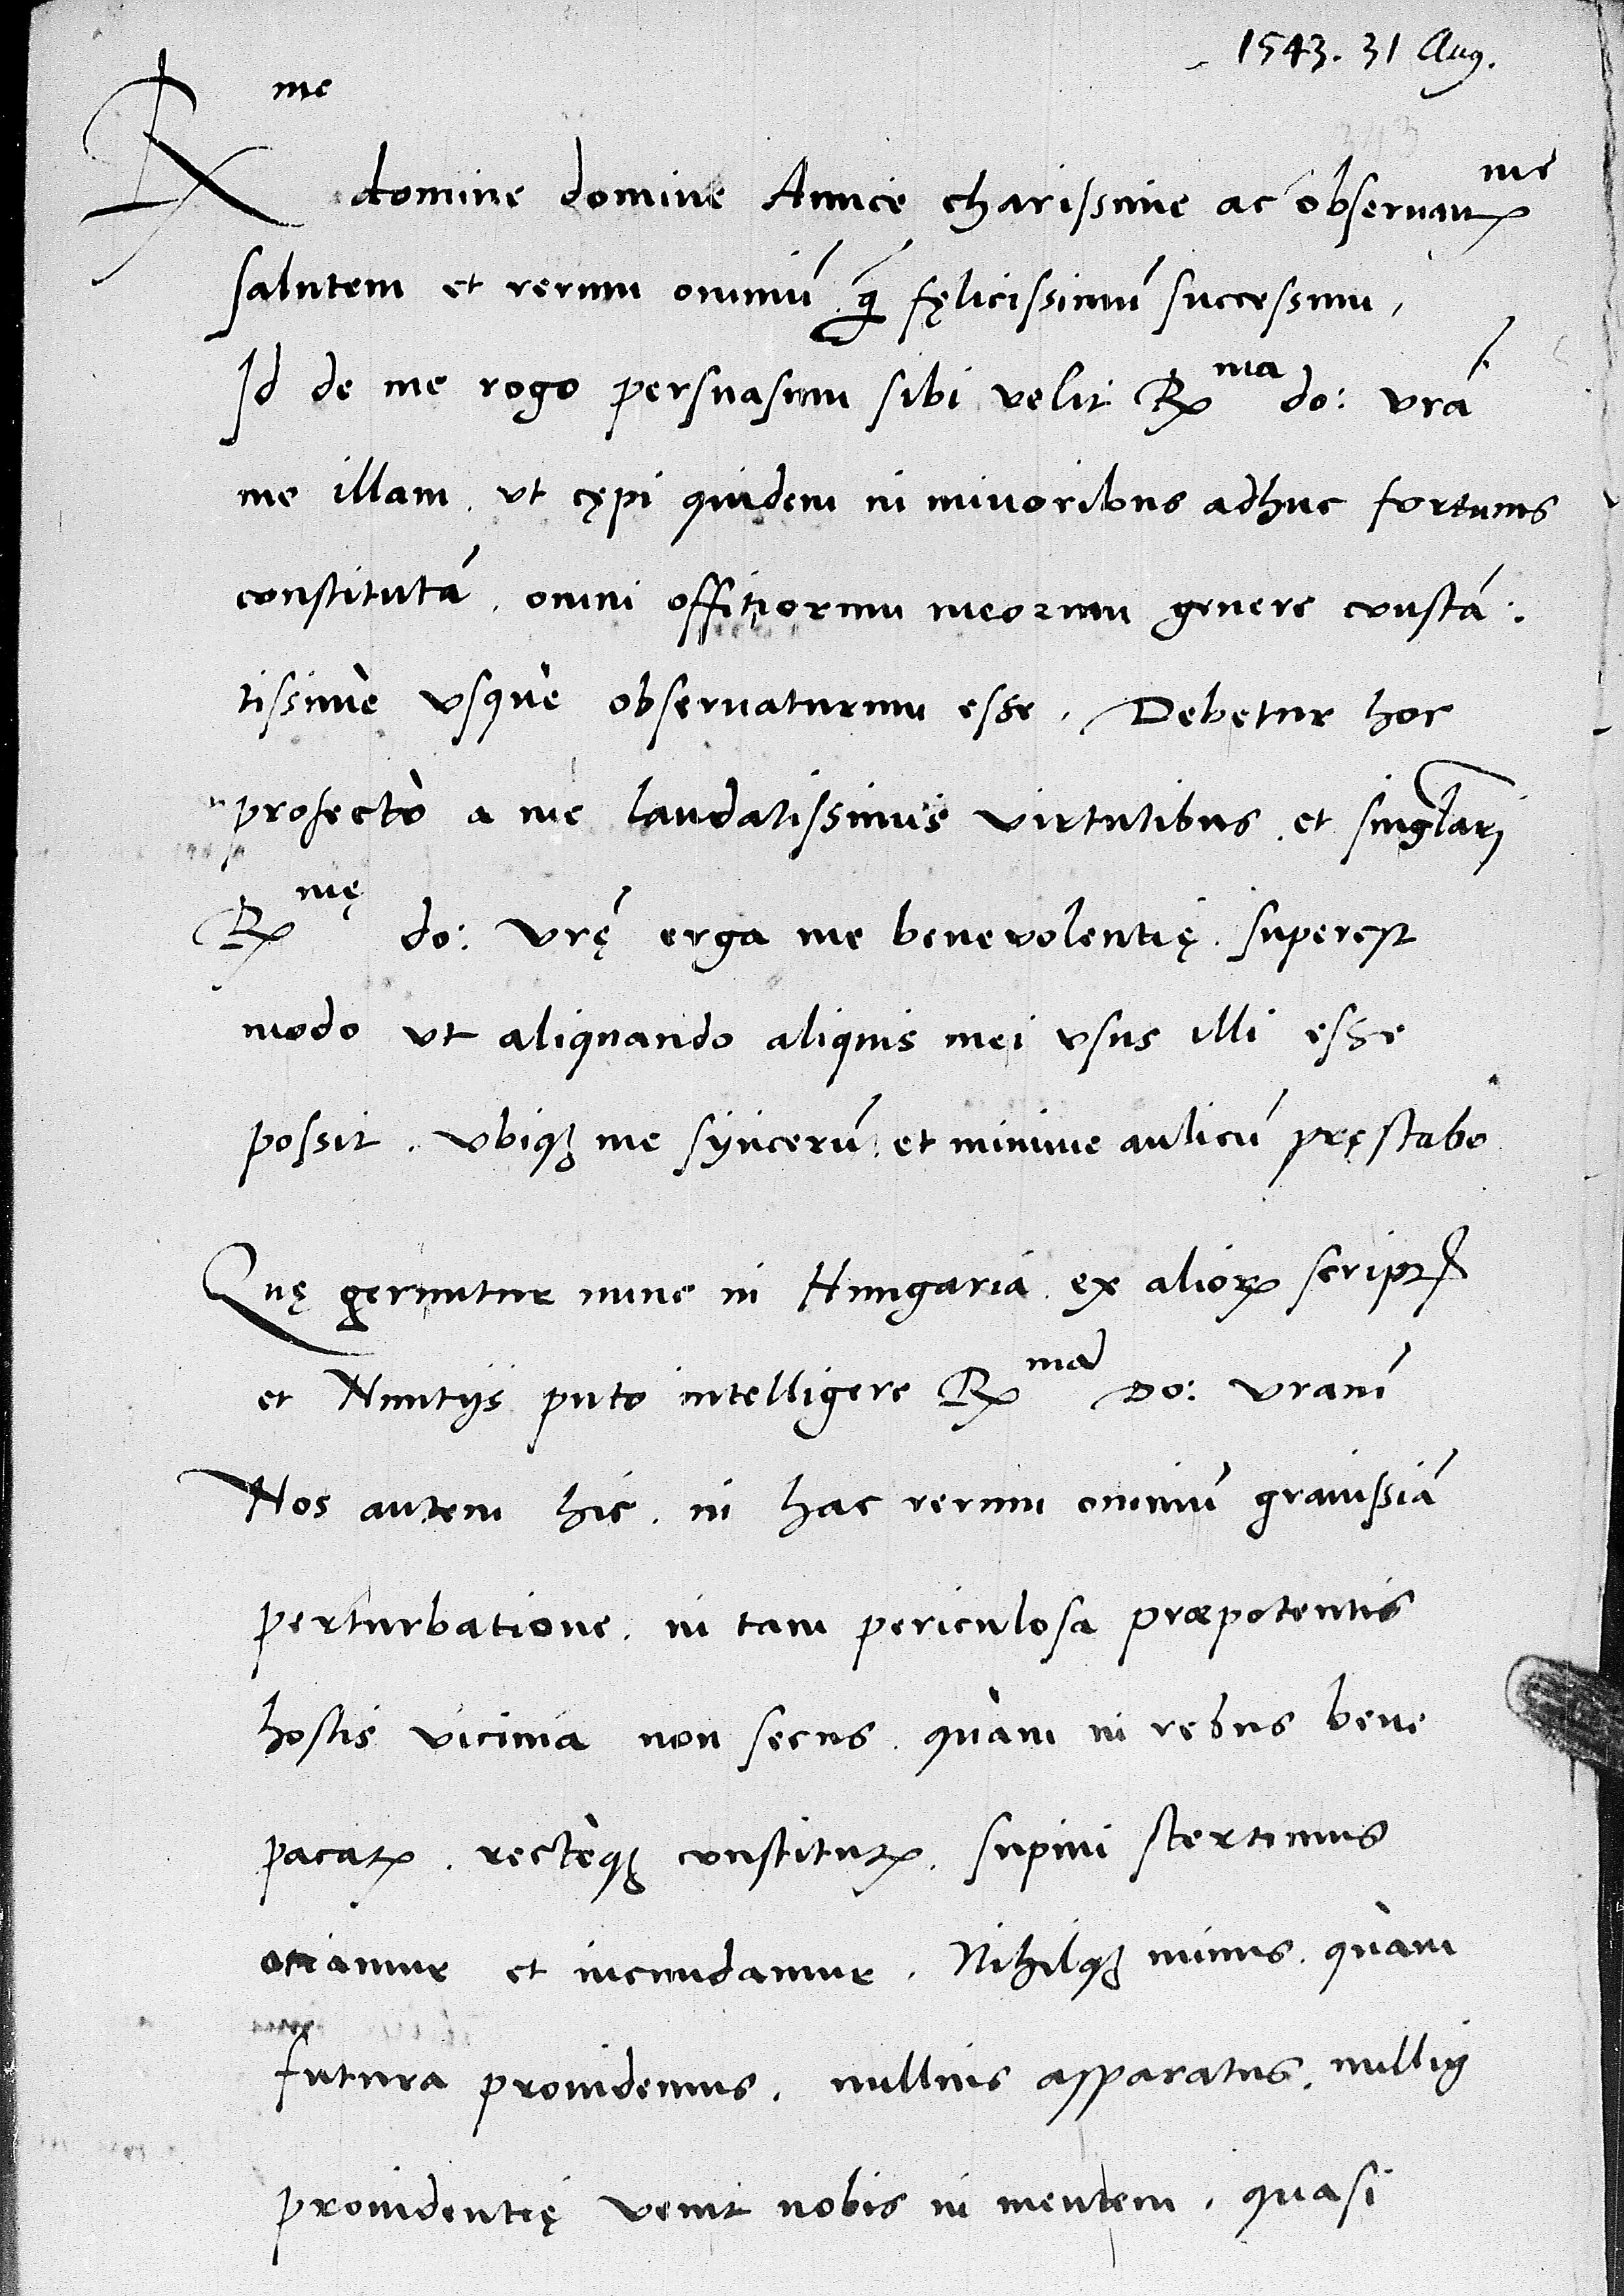 1543. 31 Aug.
R me
domine domine Amice charissime ac obseruant me
salutem et rerum omniú .q̃ fęlicissimú successum,
Id de me rogo persuasum sibi velit R ma do: vrá
me illam. vt cępi quidem in minoribus adhuc fortunis
constitutá. omni offitiorum meorum genere constá:
tissimè vsquè obseruaturum esse. Debetur hoc
profectò a me laudatissimis virtutibus. et singlari
R mę do: vrę erga me beneuolentię. superest
modo vt aliquando aliquis mei vsus illi esse
possit. vbiqꝫ me syncerú. et minime aulicú pręstabo
Quę geruntur nunc in Hungaria. ex alioꝝ scriptꝭ
et Nuntijs puto intelligere R ma Do: vram
Nos autem hic. in hac rerum omniú grauissiá
perturbatione. in tam periculosa præpotentis
hostis vicinia non secus. quàm in rebus bene
pacatꝭ. rectèqꝫ constitutꝭ. supini stertimus
otiamur et iucundamur. Nihilqꝫ minus. quàm
futura prouidemus. nullius apparatus. nulliꝰ
prouidentię venit nobis in mentem. quasi